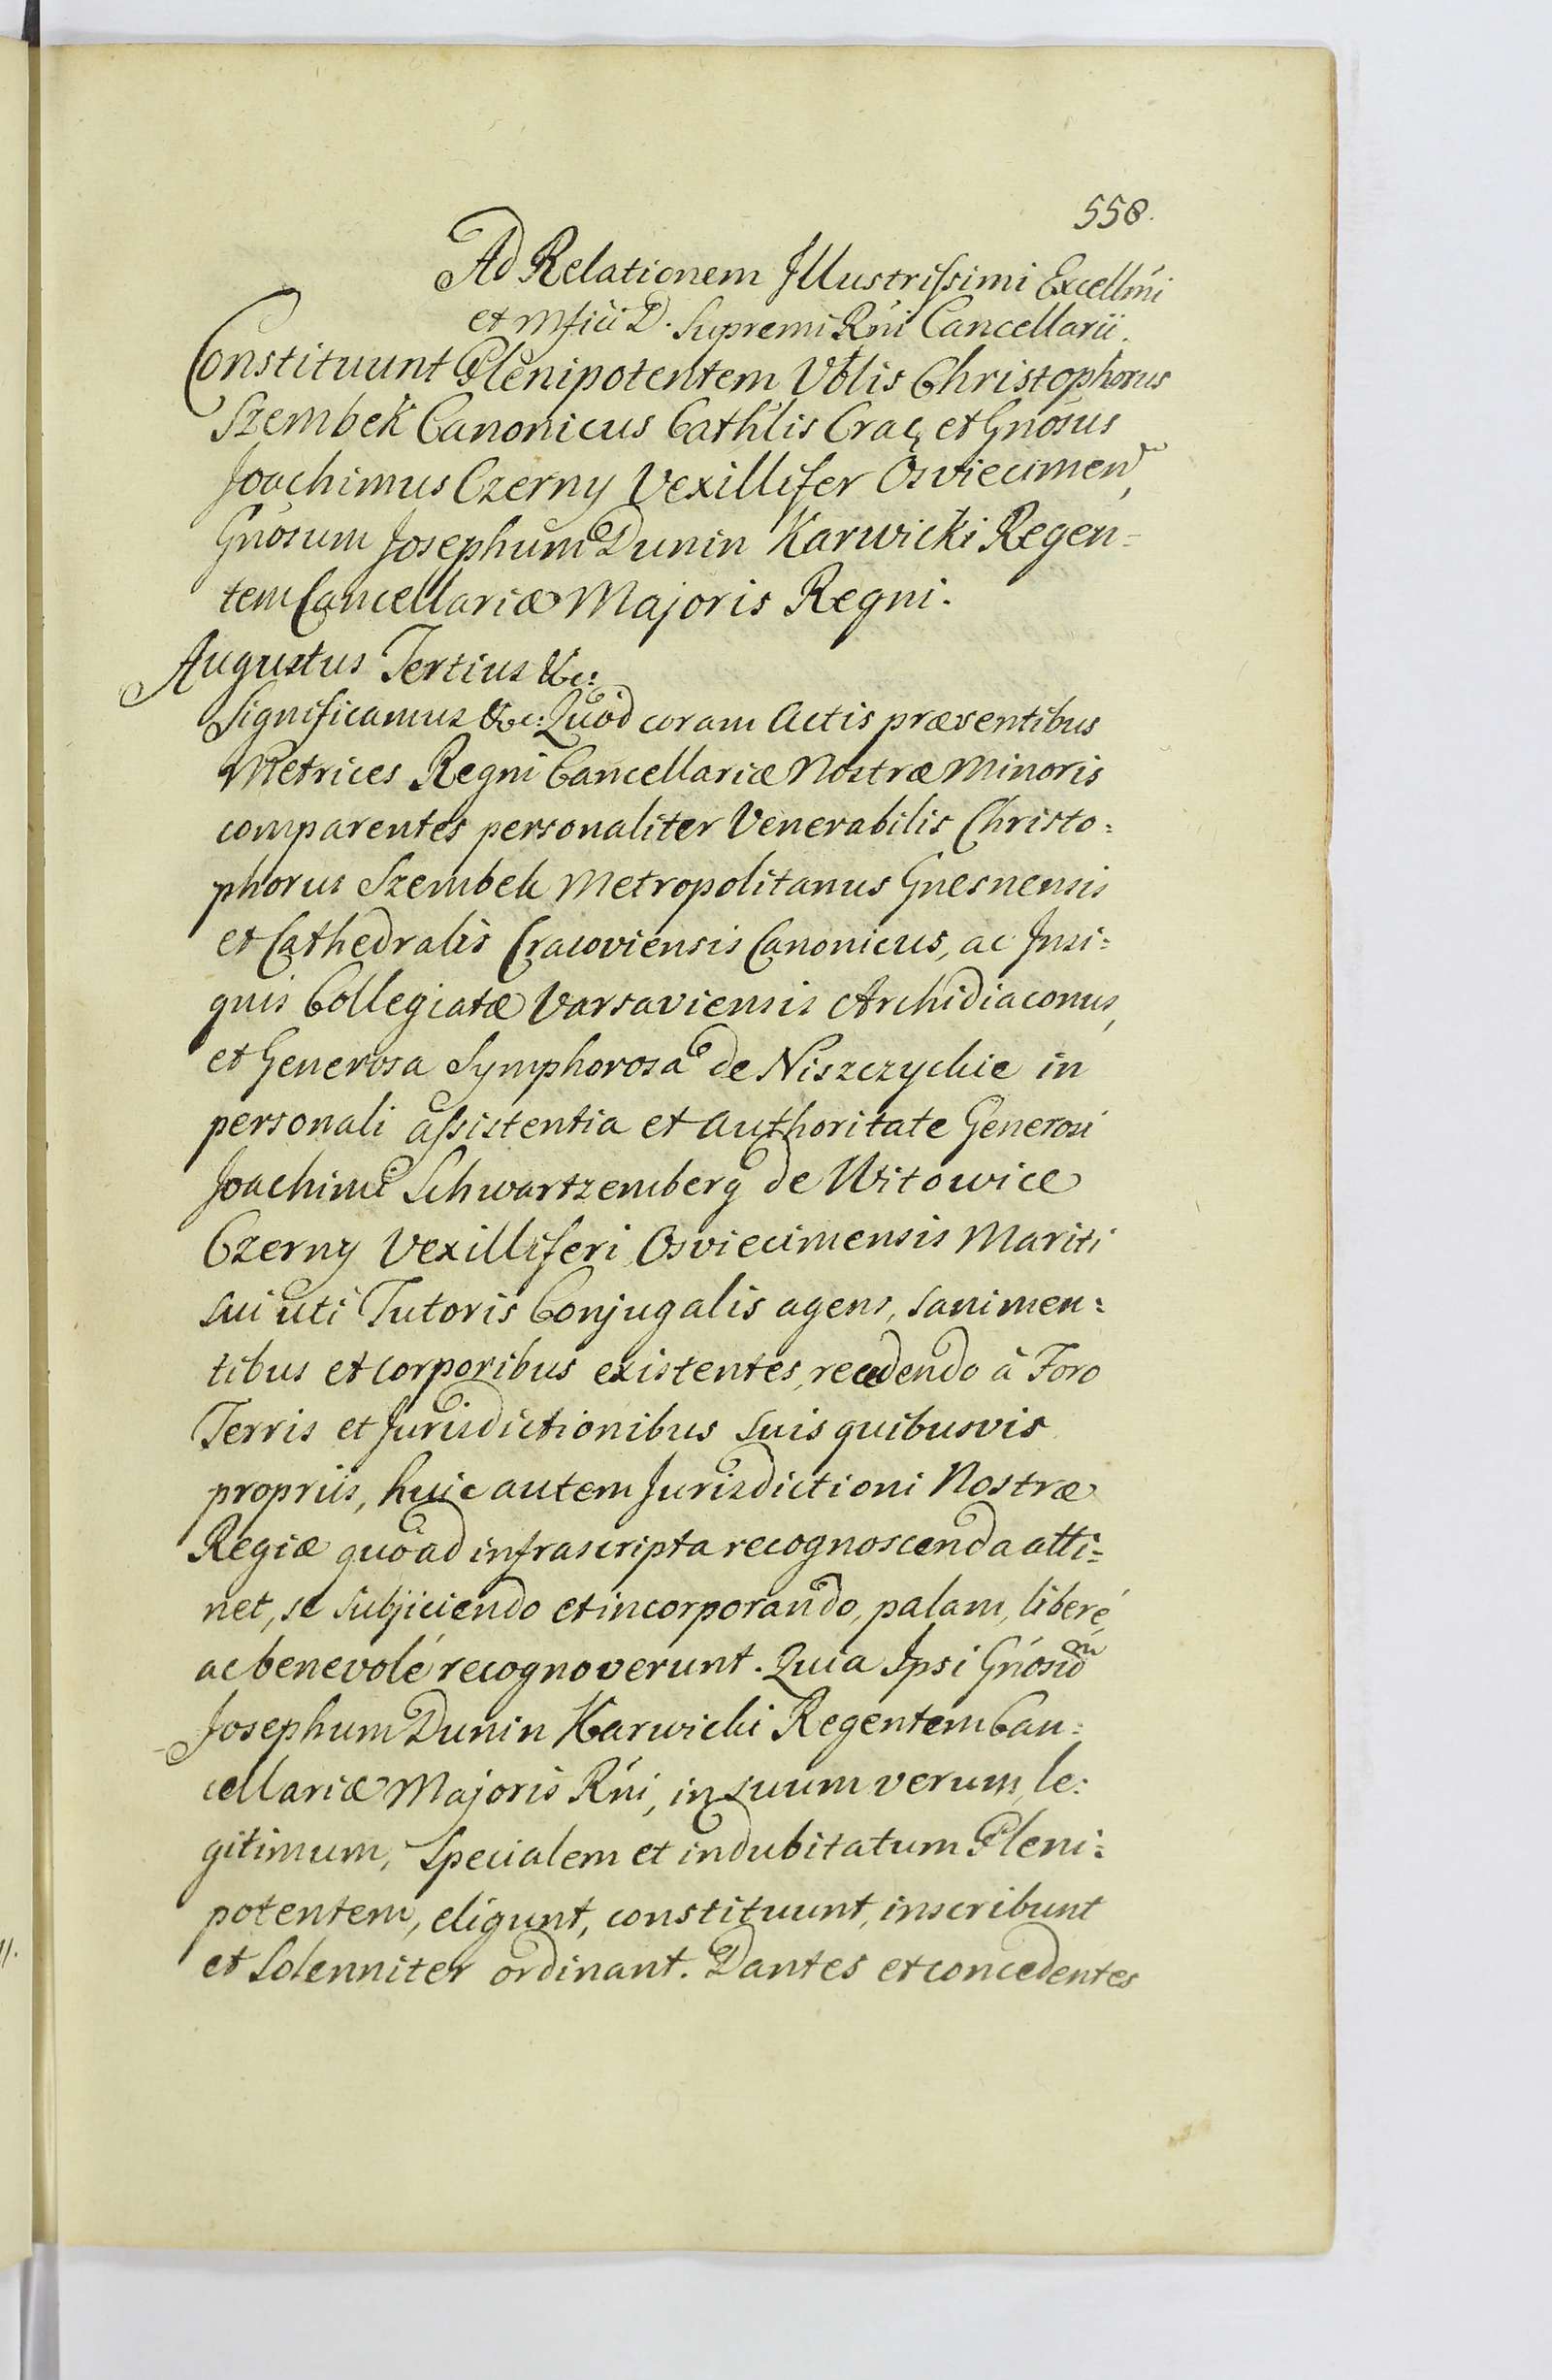 558.
Ad Relationem Illustrissimi Excellmi
et Mfici D. Supremi Rni Cancellarii.
Constituunt Plenipotentem Vblis Christophorus
Szembek Canonicus Cathlis Crac, et Gnosus
Joachimus Czerny Vexillifer Osviecimen,
Gnosum Josephum Dunin Karwicki Regen=
tem Cancellariæ Majoris Regni.
Augustus Tertius &c:
Significamus &c: Quòd coram Actis præsentibus
Metrices Regni Cancellariæ Nostræ Minoris
comparentes personaliter Venerabilis Christo=
phorus Szembek Metropolitanus Gnesnensis
et Cathedralis Cracoviensis Canonicus, ac Insi=
gnis Collegiatæ Varsaviensis Archidiaconus,
et Generosa Symphorosa de Niszczyckie in
personali assistentia et authoritate Generosi
Joachimi Schwartzemberg de Witowice
Czerny Vexilliferi Osviecimensis Mariti
sui uti Tutoris Conjugalis agens, sani men=
tibus et corporibus existentes, recedendo à Foro
Terris et Jurisdictionibus suis quibusvis
propriis, huic autem Jurisdictioni Nostræ
Regiæ quoad infrascripta recognoscenda atti=
net, se subjiciendo et incorporando, palam, liberé,
ac benevolé recognoverunt. Quia Ipsi Gnosum
Josephum Dunin Karwicki Regentem Can=
cellariæ Majoris Rni, in suum verum, le=
gitimum, Specialem et indubitatum Pleni=
potentem, eligunt, constituunt, inscribunt
et Solenniter ordinant. Dantes et concedentes